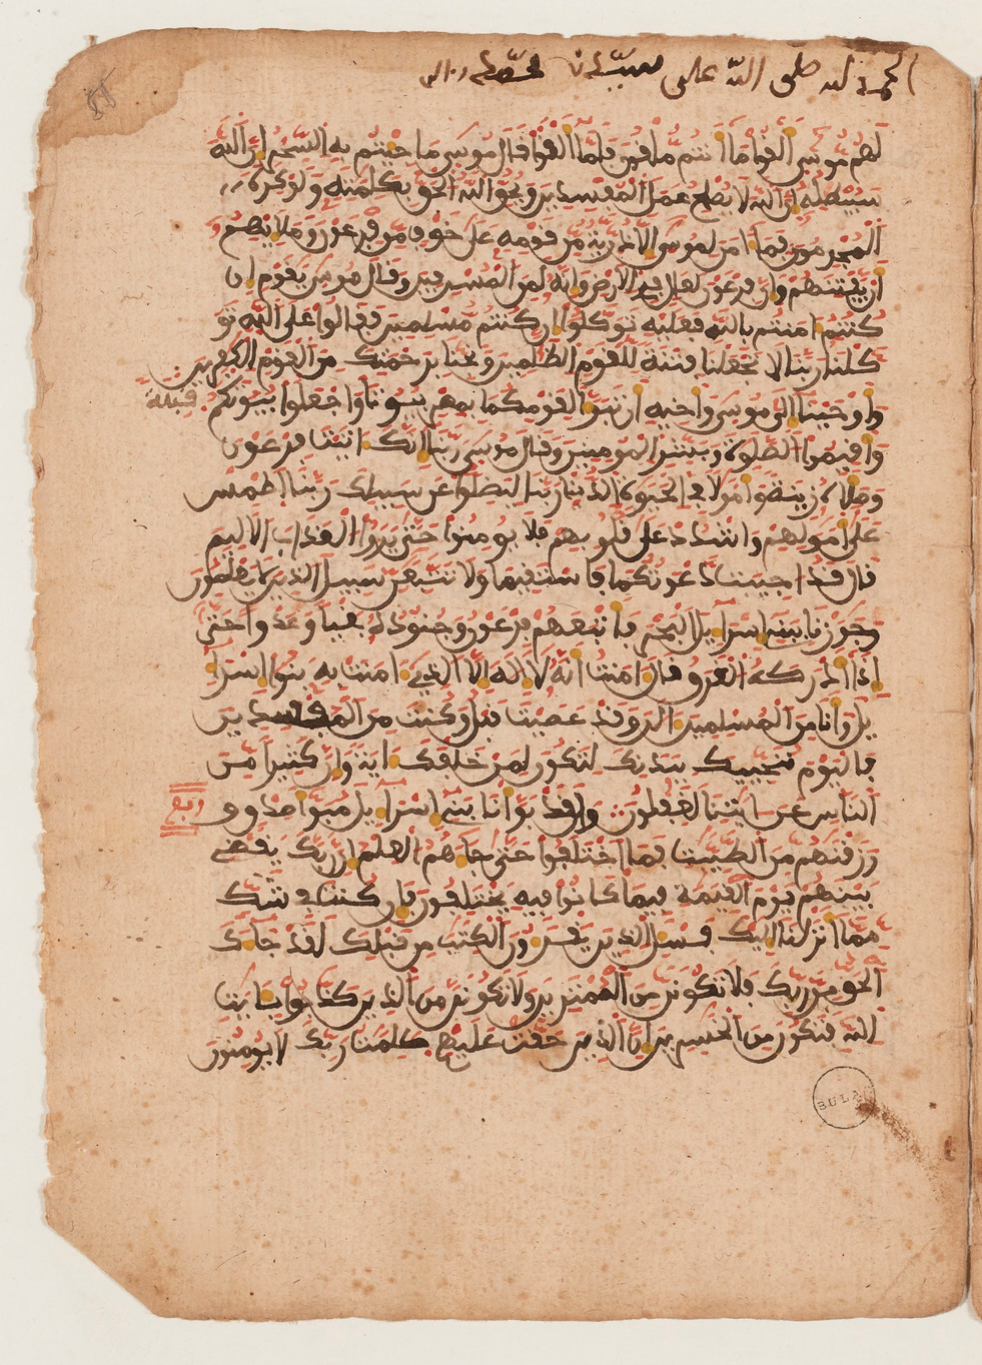 الحمد لله صلى الله على سيدنا محمد
لهم موسى ألقوا ما أنتم ملقون فلما ألقوا قال موسى ما جيتم به السحر إن الله
سيبطله إن الله لا يصلح عمل المفسدين ويحق الله الحق بكلمته ولو كره
المجرمون فما امن لموسى إلا ذرية من قومه على خوف من فرعون وملإيهم
أن يفتنهم وإن فرعون لعال في الارض وإنه لمن المسرفين وقال موسى يقوم إن
كنتم امنتم بالله فعليه توكلوا إن كنتم مسلمين فقالوا على الله تو
كلنا ربنا لا تجعلنا فتنة للقوم الظلمين ونجنا برحمتك من القوم الكفرين
وأوحينا إلى موسى وأخيه أن تبوا لقومكما بمصر بيوتا واجعلوا بيوتكم قبلة
وأقيموا الصلوة وبشر المومنين وقال موسى ربنا إنك اتيت فرعون
وملأه زينة وأمولا في الحيوة الدنيا ربنا ليضلوا عن سبيلك ربنا اطمس
على أمولهم واشدد على قلوبهم فلا يومنوا حتى يروا العذاب الاليم
قال قد اجيبت دعوتكما فاستقيما ولا تتبعن سبيل الذين لا يعلمون
وجوزنا ببنے إسراءيل البحر فأتبعهم فرعون وجنوده بغيا وعدوا حتى
إذا أدركه الغرق قال امنت أنه لا إله إلا الذي امنت به بنوا إسرا
يل وأنا من المسلمين الن وقد عصيت قبل وكنت من المفسدين
فاليوم ننجيك ببدنك لتكون لمن خلفك اية وإن كثيرا من
الناس عن ايتنا لغفلون ولقد بوأنا بنے إسراءيل مبوأ صدق و
ربع
رزقنهم من الطيبت فما اختلفوا حتى جاهم العلم إن ربك يقضے
بينهم يوم القيمة فيما كانوا فيه يختلفون فإن كنت في شك
مما أنزلنا إليك فسئل الذين يقرءون الكتب من قبلك لقد جاك
الحق من ربك فلا تكونن من الممترين ولا تكونن من الذين كذبوا بايت
الله فتكون من الخسرين إن الذين حقت عليهم كلمت ربك لا يومنون
BULAC